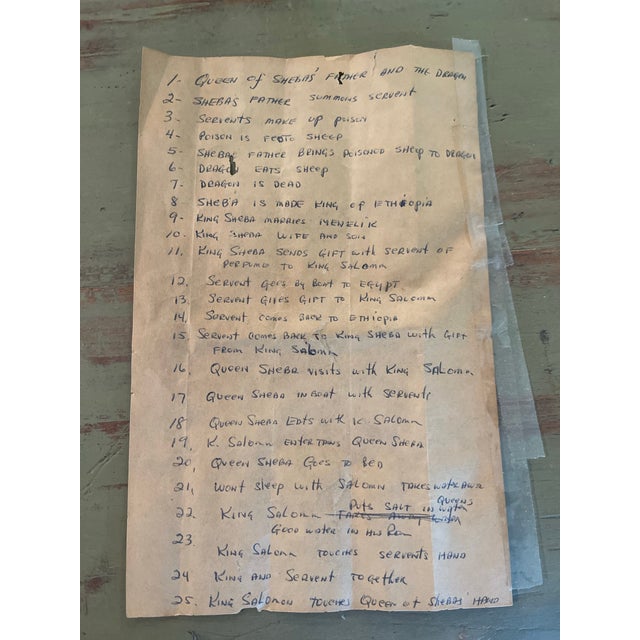 1- QUEEN OF SHEBAS' FATHER AND THE DRAGON
2- SHEBAS FATHER SUMMONS SERVENT
3- SERVENTS MAKE UP POISON
4- POISON IS FED TO SHEEP
5- SHEBAS FATHER BRINGS POISONED SHEEP TO DRAGON
6- DRAGON EATS SHEEP
7- DRAGON IS DEAD
8 SHEBA IS MADE KING OF ETHIOPIA
9- KING SHEBA MARRIES MENELIK
10. KING SHEBA WIFE AND SON
11. KING SHEBA SENDS GIFT WITH SERVENT OF
PERFUME TO KING SALOMN
12. SERVENT GOES BY BOAT TO EGYPT
13. SERVENT GIVES GIFT TO KING SALOMN
14. SERVENT COMES BACK TO ETHIOPIA
15 SERVENT COMES BACK TO KING SHEBA WITH GIFT
FROM KING SALOMN
16. QUEEN SHEBA VISITS WITH KING SALOMN
17 QUEEN SHEBA IN BOAT WITH SERVENTS
18 QUEEN SHEBA EATS WITH K. SALOMN
19. K. SALOMN ENTERTANS QUEEN SHEBA
20, QUEEN SHEBA GOES TO BED
21, WONT SLEEP WITH SALOMN TAKES WATER AWA
22. KING SALOMN TAKES AWAY PUTS SALT IN QUEENS WATER
GOOD WATER IN HIS
23.
KING SALOMN TOUCHES SERVENTS HAND
24 KING AND SERVENT TOGETHER
25. KING SALOMON TOUCHES QUEEN OF SHEBAS' HAND